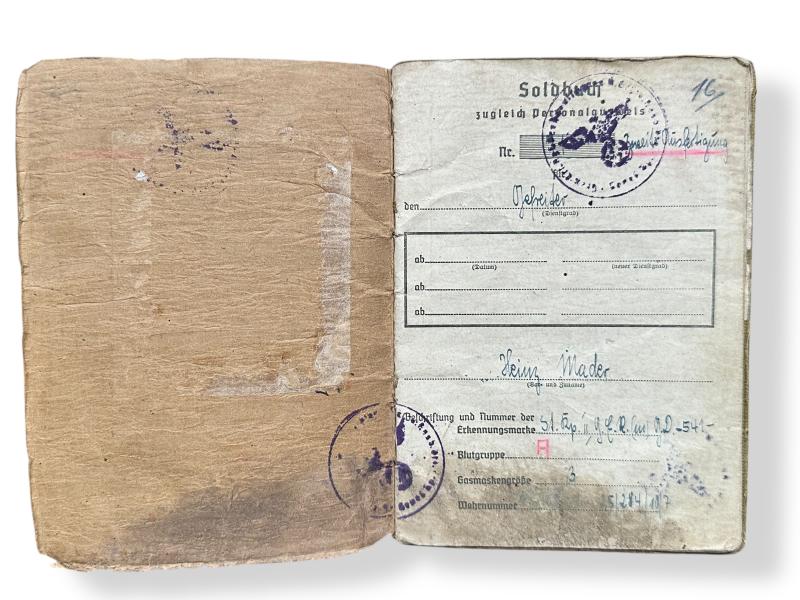 16
Soldbuch
zugleich Personalausweis
Nr.
Zweite Ausfertigung
für
den Gefreiter
(Dienstgrad)
ab
(Datum) (neuer Dienstgrad)
ab
ab
Heinz Mader
(Vor- und Zuname)
Beschriftung und Nummer der
Erkennungsmarke St. Kp. -541-
Blutgruppe A
Gasmaskengröße 3
Wehrnummer